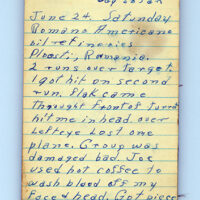 June 24. Saturday
Romano Americano
oil refineries
Ploesti, Romania.
2 runs over target.
I got hit on second
run. flak came
thought front of turret
hit me in head. over
left eye Lost one
plane. Group was
damaged bad. Joe
used hot coffee to
wash blood off my
face & head. Got piece